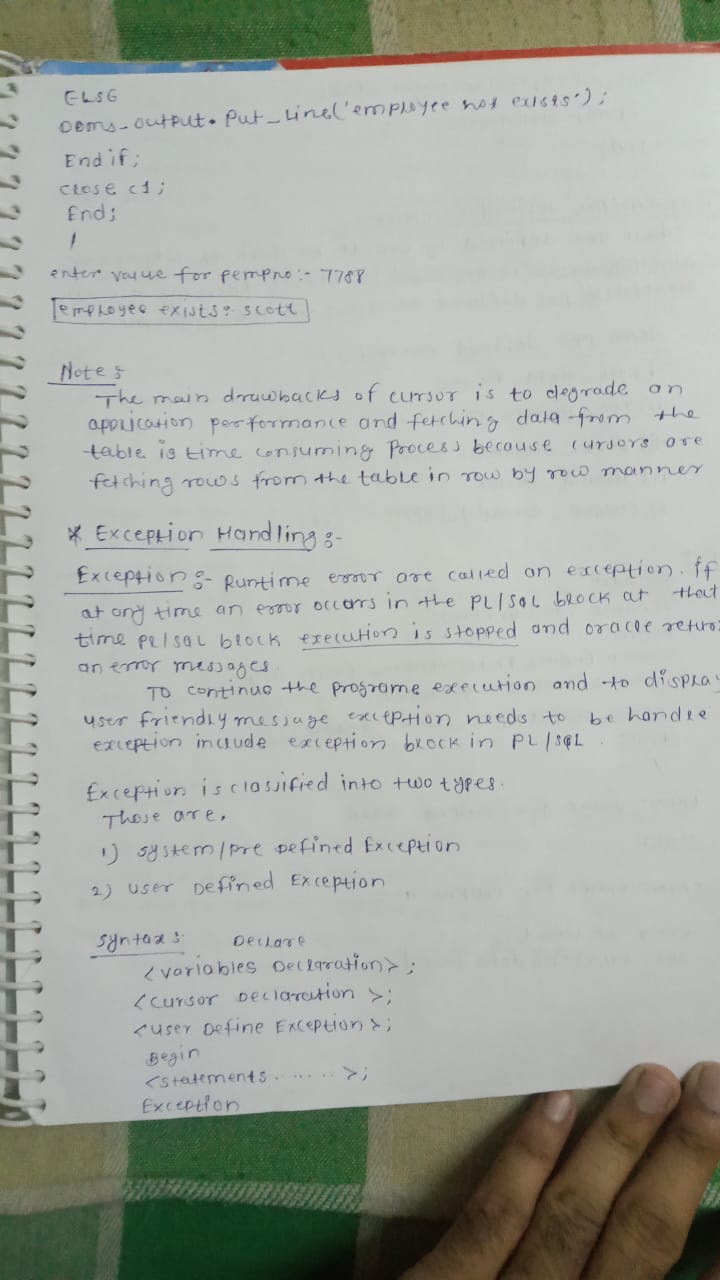 ELSE
DBms-output.Put_Line('employee not exists');
End if;
close c1;
End;
/
enter value for pempno:- 7788
employee exists: scott
Note:
The main drawbacks of cursor is to degrade an
application performance and fetching data from the
table is time consuming Process because cursors are
fetching rows from the table in row by row manner
* Exception Handling:-
Exception:- Runtime error are called an exception. If
at any time an error occurs in the PL/SQL block at that
time PL/SQL block execution is stopped and oracle return
an error messages.
To continue the programe execution and to display
user friendly message exception needs to be handle
exception include exception block in PL/SQL.
Exception is classified into two types.
Those are,
1) system/pre Defined Exception
2) user Defined Exception
Syntax: Declare
<variables Declaration>;
<cursor Declaration>;
<user Define Exception>;
Begin
<statements.......>;
Exception